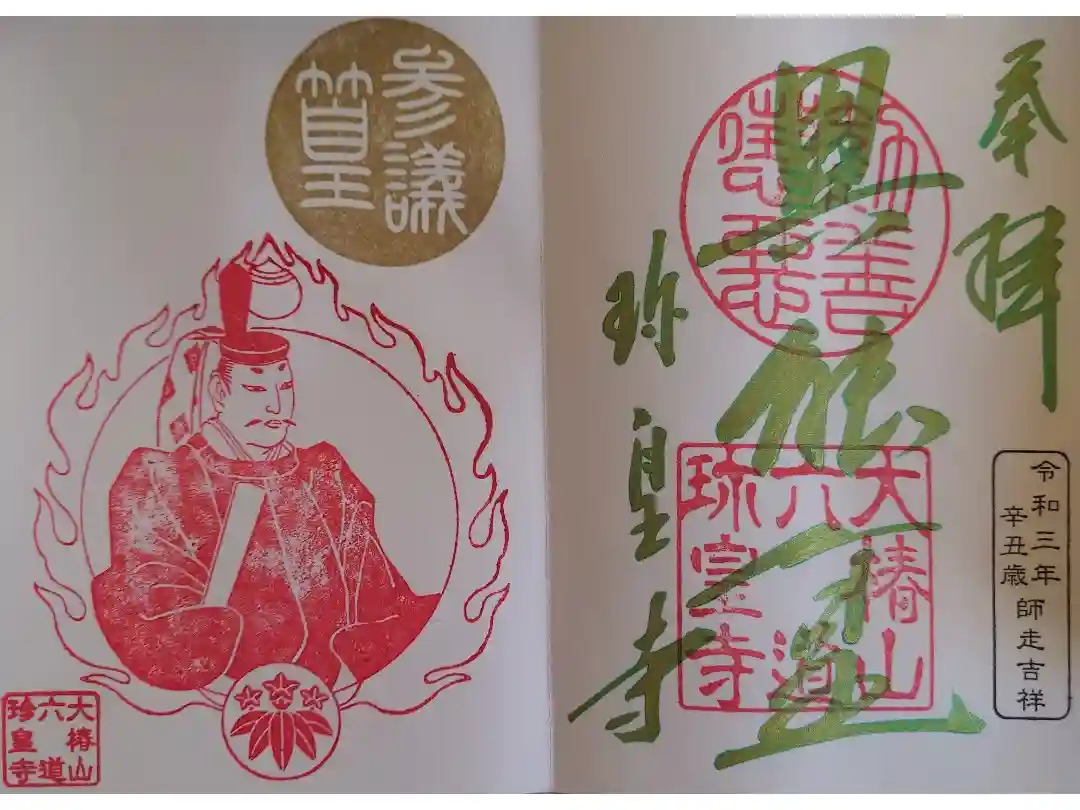 奉拝
勧善
懲悪
珎皇寺
大椿山
六道
珎皇寺
令和三年
辛丑歳
師走吉祥
参議
篁
大椿山
六道
珍皇寺